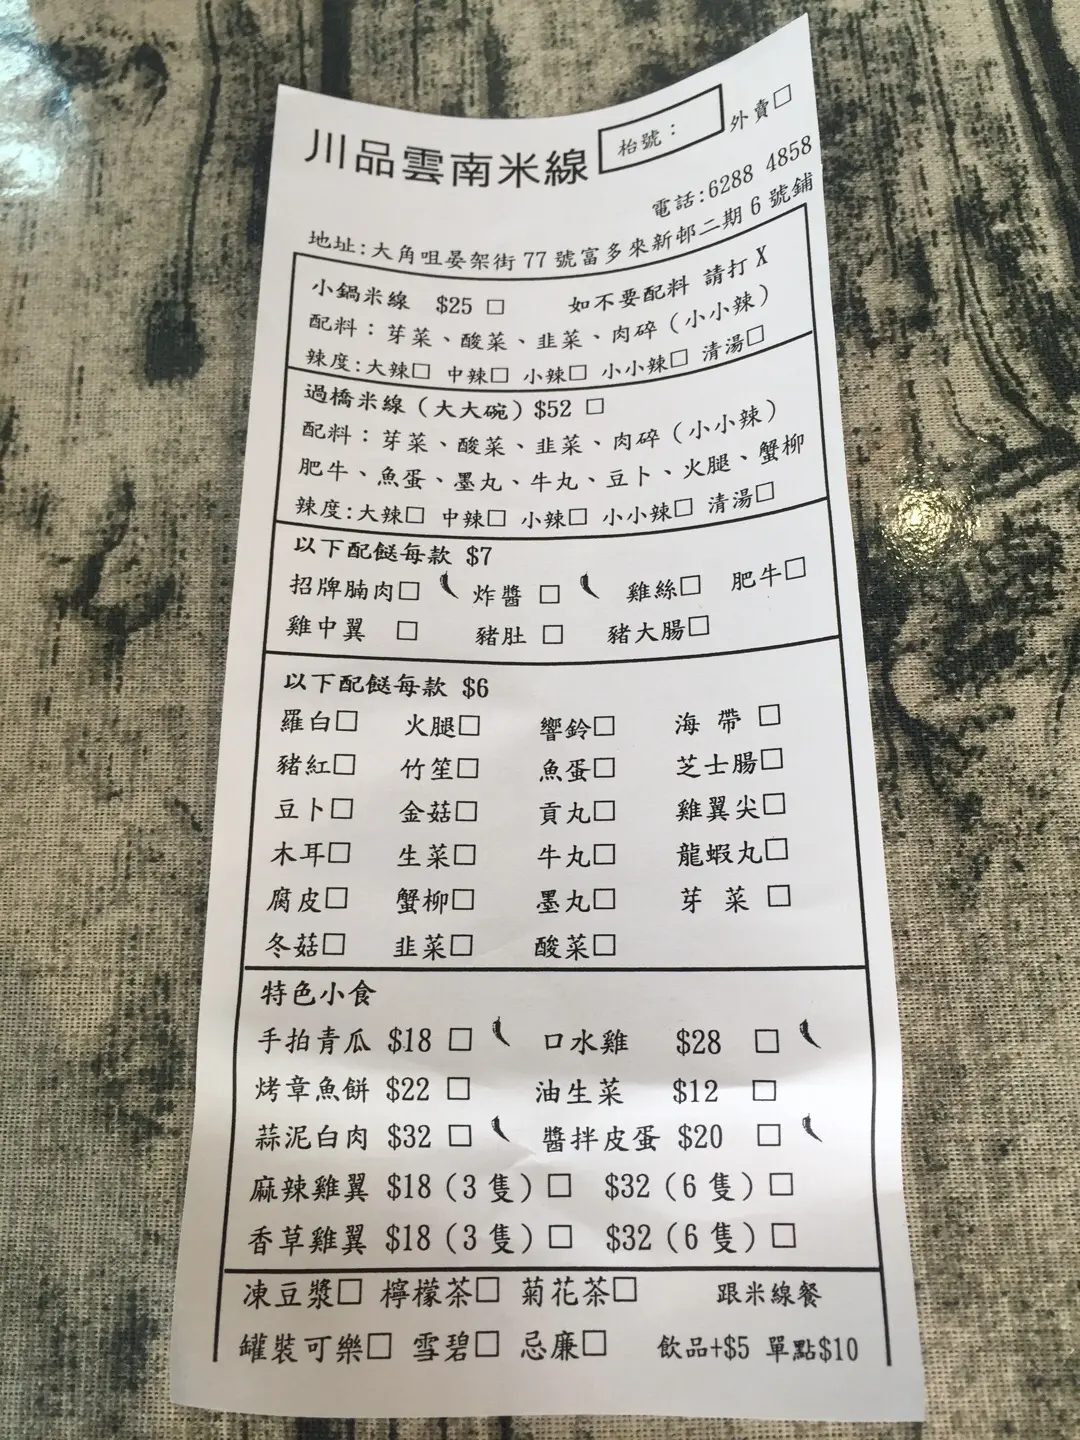 川品雲南米線 枱號： 外賣□
電話:6288 4858
地址:大角咀晏架街 77 號富多來新邨二期 6 號鋪
小鍋米線 $25 □ 如不要配料 請打 X
配料：芽菜、酸菜、韭菜、肉碎（小小辣）
辣度:大辣□ 中辣□ 小辣□ 小小辣□ 清湯□
過橋米線（大大碗）$52 □
配料：芽菜、酸菜、韭菜、肉碎（小小辣）
肥牛、魚蛋、墨丸、牛丸、豆卜、火腿、蟹柳
辣度:大辣□ 中辣□ 小辣□ 小小辣□ 清湯□
以下配餸每款 $7
招牌腩肉□ 炸醬 □ 雞絲□ 肥牛□
雞中翼 □ 豬肚 □ 豬大腸□
以下配餸每款 $6
羅白□ 火腿□ 響鈴□ 海 帶 □
豬紅□ 竹笙□ 魚蛋□ 芝士腸□
豆卜□ 金菇□ 貢丸□ 雞翼尖□
木耳□ 生菜□ 牛丸□ 龍蝦丸□
腐皮□ 蟹柳□ 墨丸□ 芽 菜 □
冬菇□ 韭菜□ 酸菜□
特色小食
手拍青瓜 $18 □ 口水雞 $28 □
烤章魚餅 $22 □ 油生菜 $12 □
蒜泥白肉 $32 □ 醬拌皮蛋 $20 □
麻辣雞翼 $18（3 隻）□ $32（6 隻）□
香草雞翼 $18（3 隻）□ $32（6 隻）□
凍豆漿□ 檸檬茶□ 菊花茶□ 跟米線餐
罐裝可樂□ 雪碧□ 忌廉□ 飲品+$5 單點$10